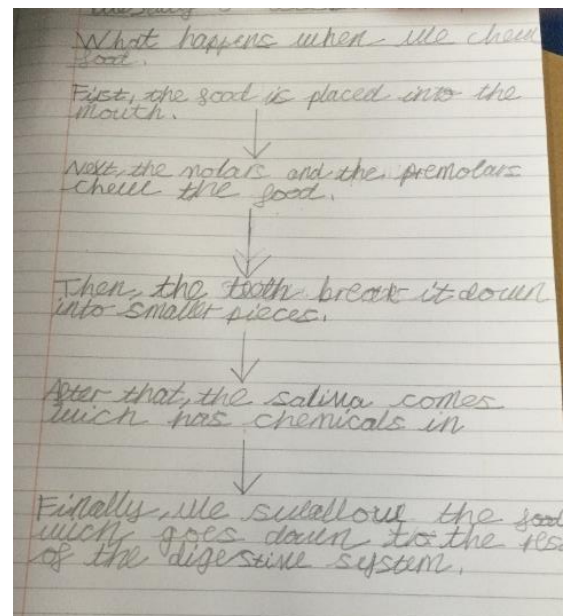 What happens when we chew
food.
First, the food is placed into the
mouth.
Next, the molars and the premolars
chew the food.
Then, the teeth break it down
into smaller pieces.
After that, the saliva comes
wich has chemicals in
Finally, we swallow the food
wich goes down to the res
of the digestive system.